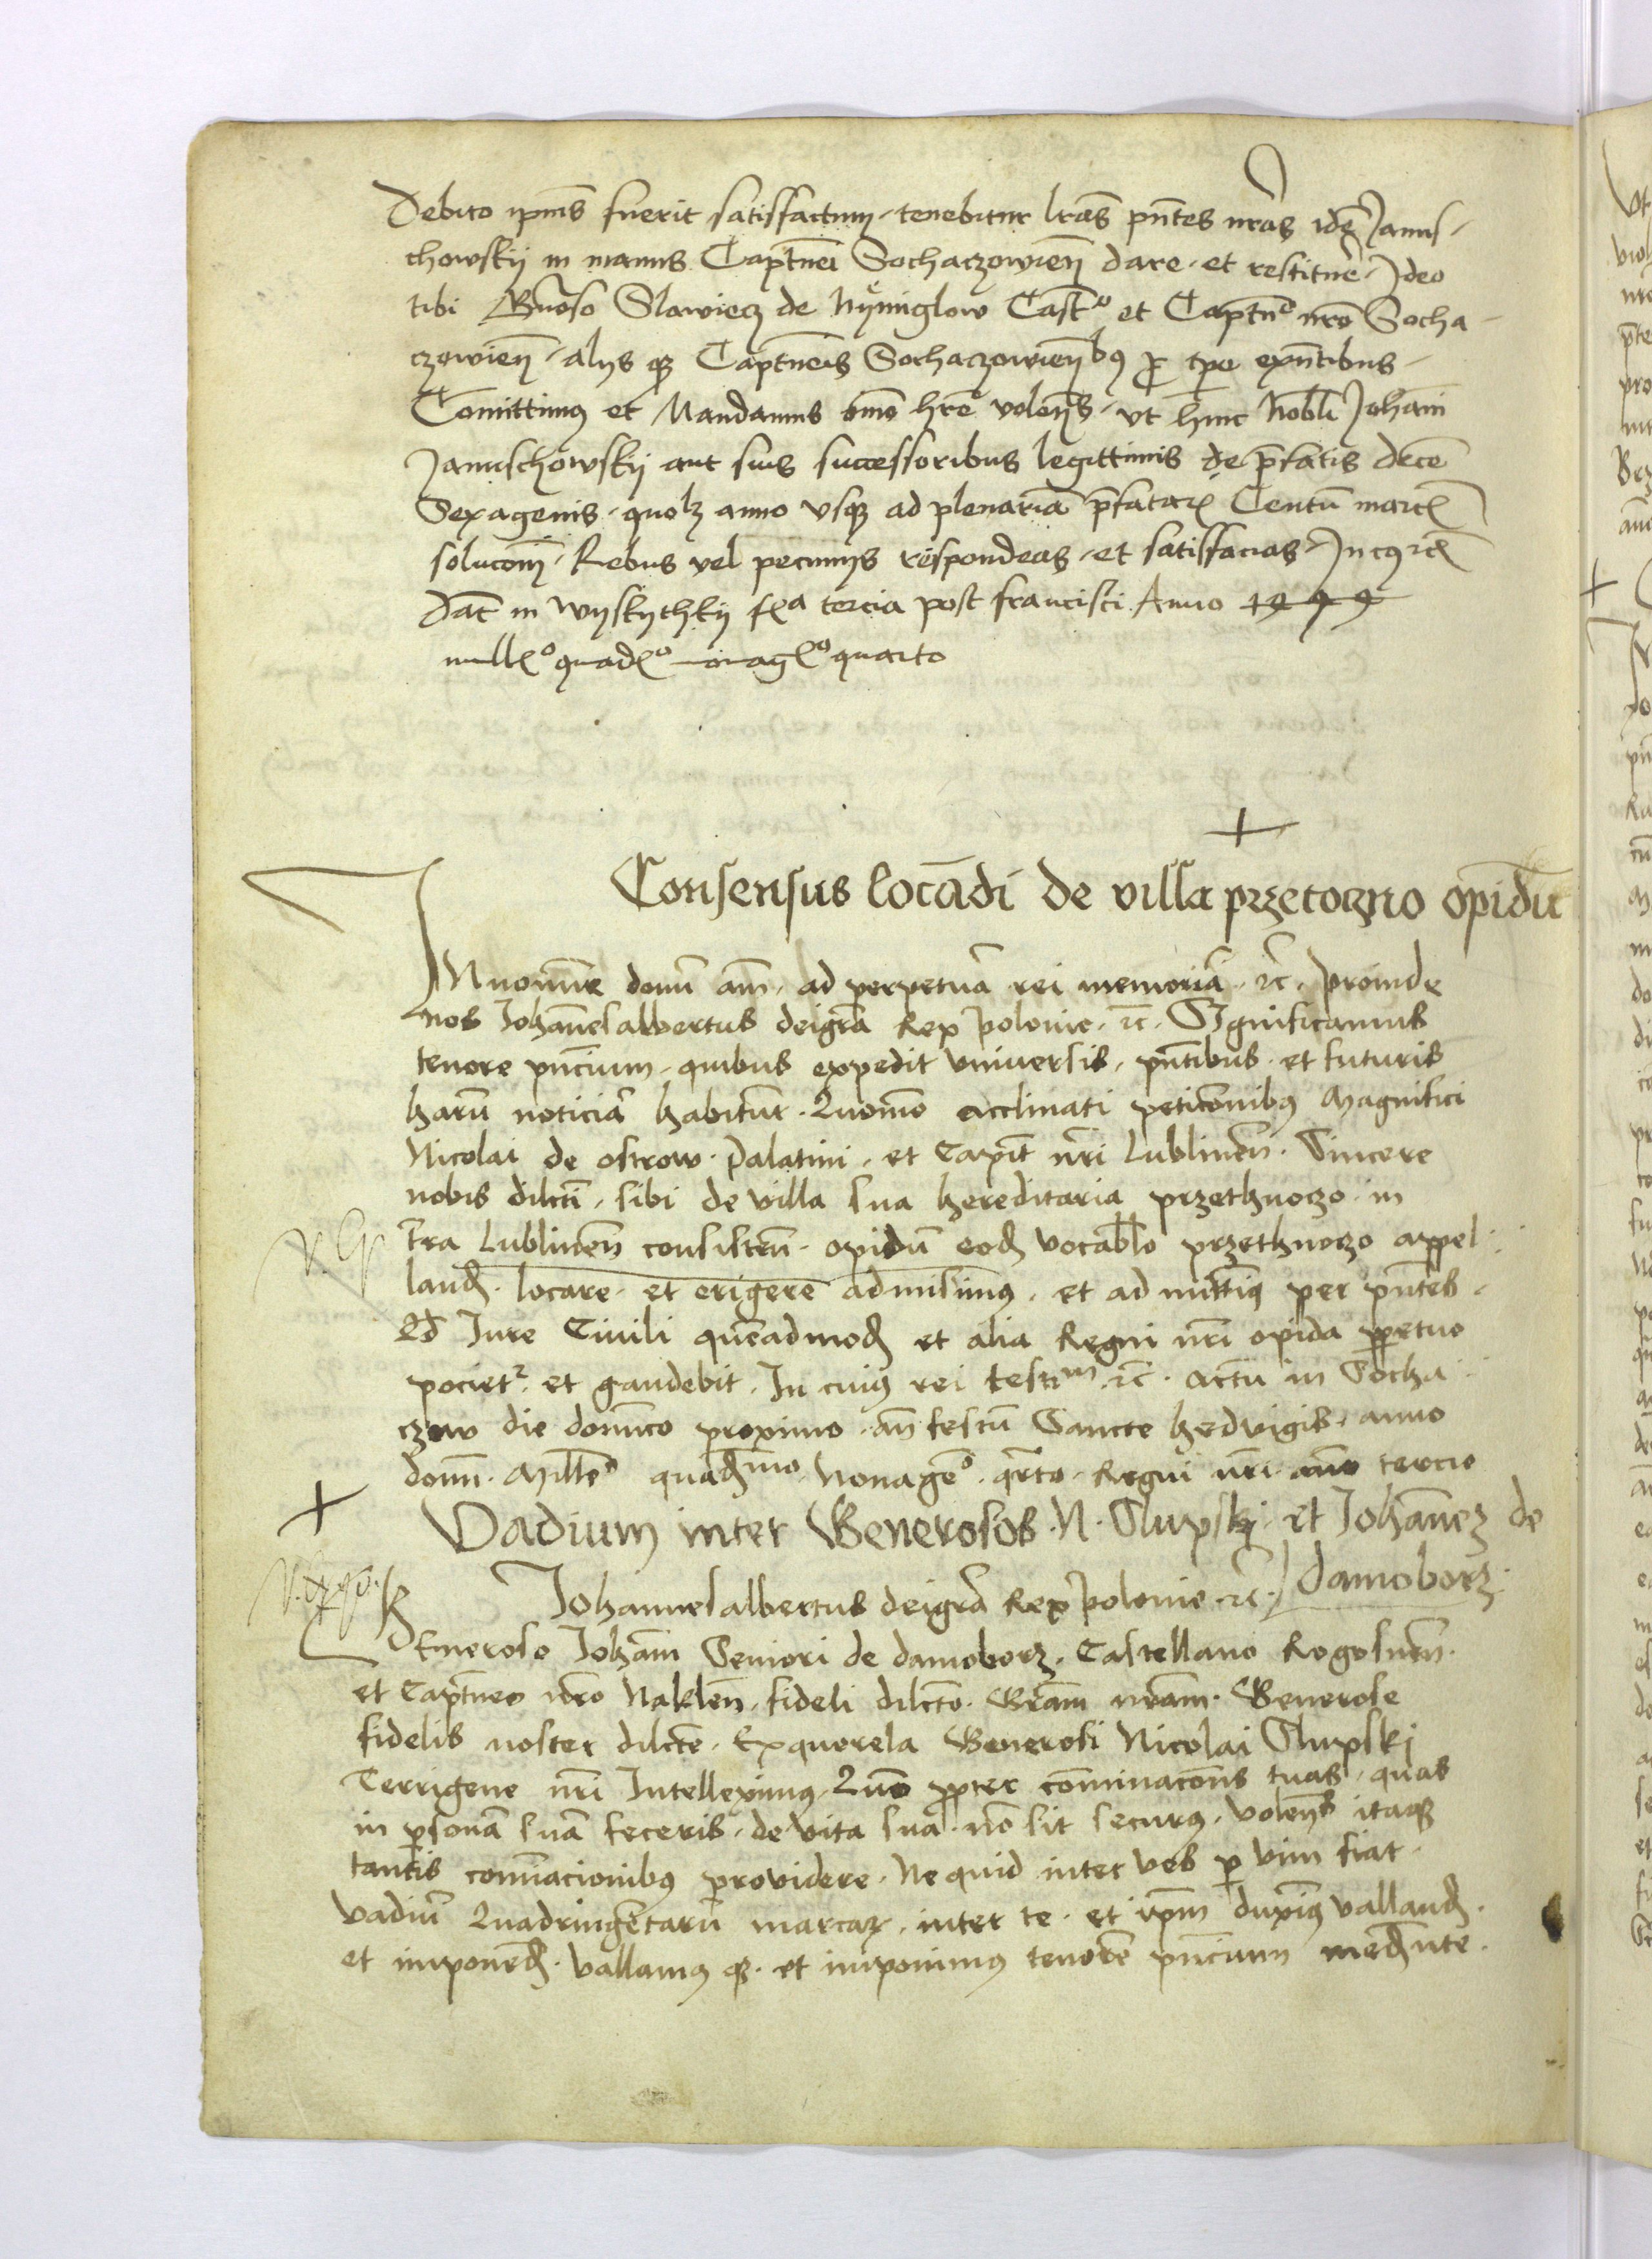 Debito ipius fuerit satisfactum, tenebitur lras pntes nras idem Janus-
chowskij in manus Captnei Sochaczowien dare et restitue. Ideo
tibi Gnoso Slawiecz de Nijmiglow Casto et Captno nro Socha-
czowien, alys qz Captneis Sochaczowienbus p tpe exntibus.
Comittimus et Mandamus omo hre volens, vt hmc Nobli Johani
Januschowskij aut suis successoribus legittimis de pfatis dece
Sexagenis, quolz anno vsqz ad plenaria pfatar Centu marc
solucom, Rebus vel pecunijs respondeas, et satisfacias. In cuius rei
Dat in Wyskythky fa tercia post francisci Anno
millo quado nonago quarto
Consensus locadi de villa przetoczno opidu
IN nomine domi am, ad perpetua rei memoria, rc, proinde
nos Johannes albertus dei gra Rex polonie, rc, Significamus
tenore pncium, quibus expedit vniuersis, pntibus et futuris
haru noticia habitur. Quomo acclinati peticonibus Magnifici
Nicolai de ostrow palatini, et Capit nri Lublinen, Sincere
nobis dilcti, sibi de villa sua hereditaria przethnoczo in
tra Lublinen consisten, opidu eod vocablo przethnoczo appel-
land, locare et erigere admisimus, et ad mittimus per pntes.
Qd Jure Ciuili queadmod et alia Regni nri opida ppetuo
pociet et gaudebit. In cuius rei testim rc. actu in Socha-
czew die domico proximo an festu Sancte hedvigis, anno
domi Mille quadmo Nonage qrto, Regni nri ano tercio
Vadium inter Generosos N. Slupski et Johanez de
damoborz
Johannes albertus dei gra Rex polonie rc.
Generoso Johani Seniori de damoborz, Castellano Rogosnen
et Captneo nro Naklen, fideli dilcto. Gram nram. Generose
fidelis noster dilcte. Ex querela Generosi Nicolai Slupski
Terrigene nri Intelleximus, Quo ppter comminacons tuas, quas
in psona sua feceris, de vita sua no sit securus, volens itaqz
tantis cominacionibus providere, Ne quid inter vos p vim fiat
vadiu Quadringetaru marcar, inter te et ipm duximus valland
et imponed, vallamus qz et imponimus tenore pncium mediante.